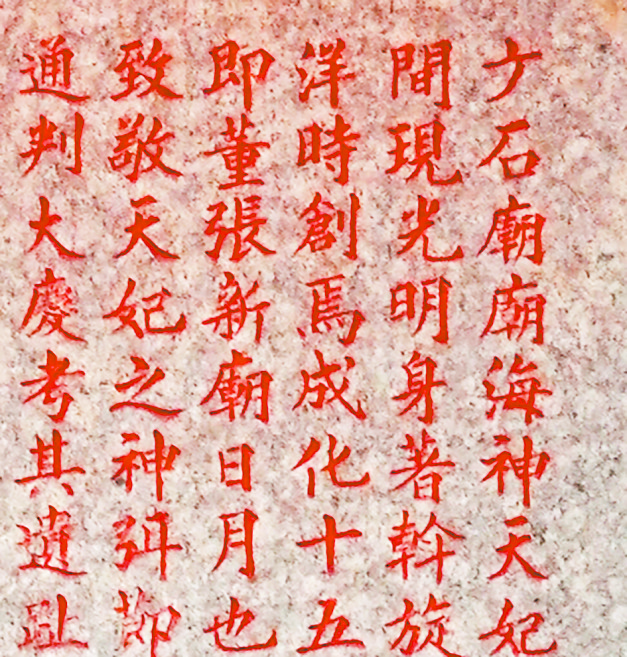 广石廟廟海神天妃
間現光明身著斡旋
洋時創焉成化十五
即董張新廟日月也
致敬天妃之神弭節
通判大慶考其遺趾